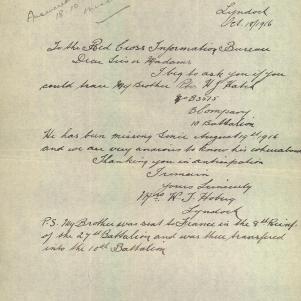 Answered
18.10
Lyndoch
Oct. 15/1916
To the Red Cross Information Bureau
Dear Sirs or Madams
I beg to ask you if you
could trace My Brother Pte W J
No 3515
B Company
10 Battalion
He has been missing since August 1916
and we are very anxious to know his whereabouts
Thanking you in anticipation
I remain
Yours Sincerely
Mrs W. J. Hoberg
Lyndoch
P.S. My Brother was sent to France in the 8th Reinf.
of the 27th Battalion and was then transfered
into the 10th Battalion